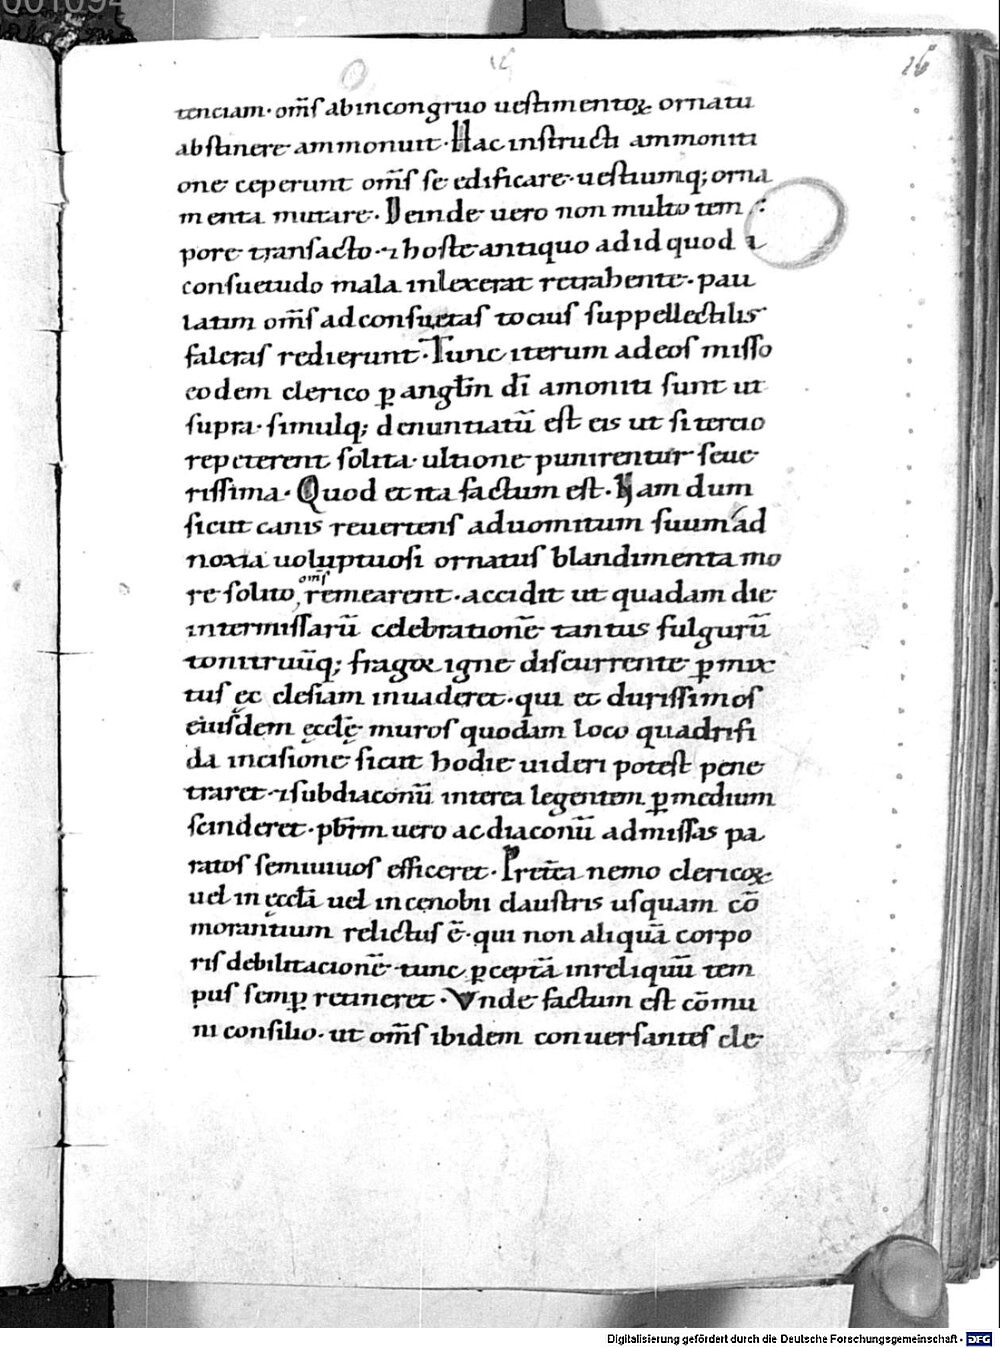 001094
16
16
tenciam· om̅s ab incongruo uestimentoꝝ ornatu
abstinere ammonuit· Hac instructi ammoniti
one ceperunt om̅s se edificare· uestiumq; orna
menta mutare· Deinde uero non multo tem
pore transacto· ⁊ hoste antiquo ad id quod
consuetudo mala inlexerat retrahente· pau
latim om̅s ad consuetas tocius suppellectilis
faleras redierunt· Tunc iterum ad eos misso
eodem clerico ꝑ angl̅m di̅ amoniti sunt ut
supra· simulq; denuntiatu̅ est eis ut si tercio
repeterent solita· ultione punirentur seue
rissima· Quod et ita factum est· Nam dum
sicut canis reuertens ad uomitum suum ad
noxia uoluptuosi ornatus blandimenta mo
re solito om̅s remearent· accidit ut quadam die
inter missaru̅ celebratione̅ tantus fulguru̅
tonitruu̅q; fragoꝛ igne discurrente ꝑmix
tus ęcclesiam inuaderet· qui et durissimos
eiusdem ęccl̅ę muros quodam loco quadrifi
da incisione sicut hodie uideri potest pene
traret· ⁊ subdiaconu̅ interea legentem ꝑ medium
scinderet· pb̅rm uero ac diaconu̅ ad missas pa
ratos semiuiuos efficeret· Pret̅ea nemo clericoꝝ
uel in ęccl̅a uel in cenobii claustris usquam co̅
morantium relictus e̅· qui non aliqua̅ corpo
ris debilitacione̅ tunc ꝑcepta̅ in reliquu̅ tem
pus semꝑ retineret· Vnde factum est co̅mu
ni consilio· ut om̅s ibidem conuersantes cle
Digitalisierung gefördert durch die Deutsche Forschungsgemeinschaft - DFG